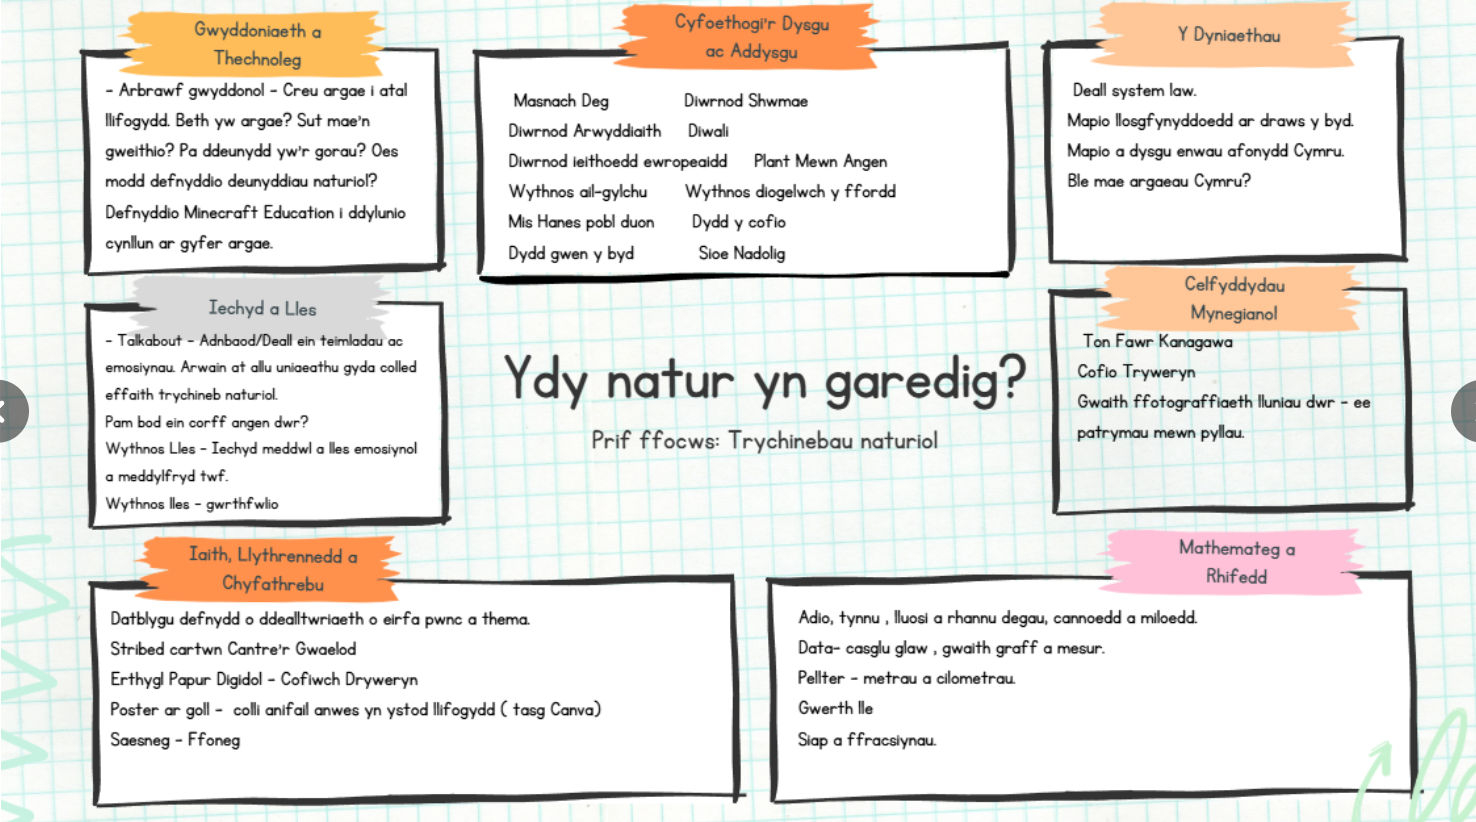 Gwyddoniaeth a
Thechnoleg
- Arbrawf gwyddonol - Creu argae i atal
llifogydd. Beth yw argae? Sut mae'n
gweithio? Pa ddeunydd yw'r gorau? Oes
modd defnyddio deunyddiau naturiol?
Defnyddio Minecraft Education i ddylunio
cynllun ar gyfer argae.
Cyfoethogi'r Dysgu
ac Addysgu
Masnach Deg Diwrnod Shwmae
Diwrnod Arwyddiaith Diwali
Diwrnod ieithoedd ewropeaidd Plant Mewn Angen
Wythnos ail-gylchu Wythnos diogelwch y ffordd
Mis Hanes pobl duon Dydd y cofio
Dydd gwen y byd Sioe Nadolig
Y Dyniaethau
Deall system law.
Mapio llosgfynyddoedd ar draws y byd.
Mapio a dysgu enwau afonydd Cymru.
Ble mae argaeau Cymru?
Iechyd a Lles
- Talkabout - Adnbaod/Deall ein teimladau ac
emosiynau. Arwain at allu uniaeathu gyda colled
effaith trychineb naturiol.
Pam bod ein corff angen dwr?
Wythnos Lles - Iechyd meddwl a lles emosiynol
a meddylfryd twf.
Wythnos lles - gwrthfwlio
Ydy natur yn garedig?
Prif ffocws: Trychinebau naturiol
Celfyddydau
Mynegianol
Ton Fawr Kanagawa
Cofio Tryweryn
Gwaith ffotograffiaeth lluniau dwr - ee
patrymau mewn pyllau.
Iaith, Llythrennedd a
Chyfathrebu
Datblygu defnydd o ddealltwriaeth o eirfa pwnc a thema.
Stribed cartwn Cantre'r Gwaelod
Erthygl Papur Digidol - Cofiwch Dryweryn
Poster ar goll - colli anifail anwes yn ystod llifogydd ( tasg Canva)
Saesneg - Ffoneg
Mathemateg a
Rhifedd
Adio, tynnu , lluosi a rhannu degau, cannoedd a miloedd.
Data- casglu glaw , gwaith graff a mesur.
Pellter - metrau a cilometrau.
Gwerth lle
Siap a ffracsiynau.